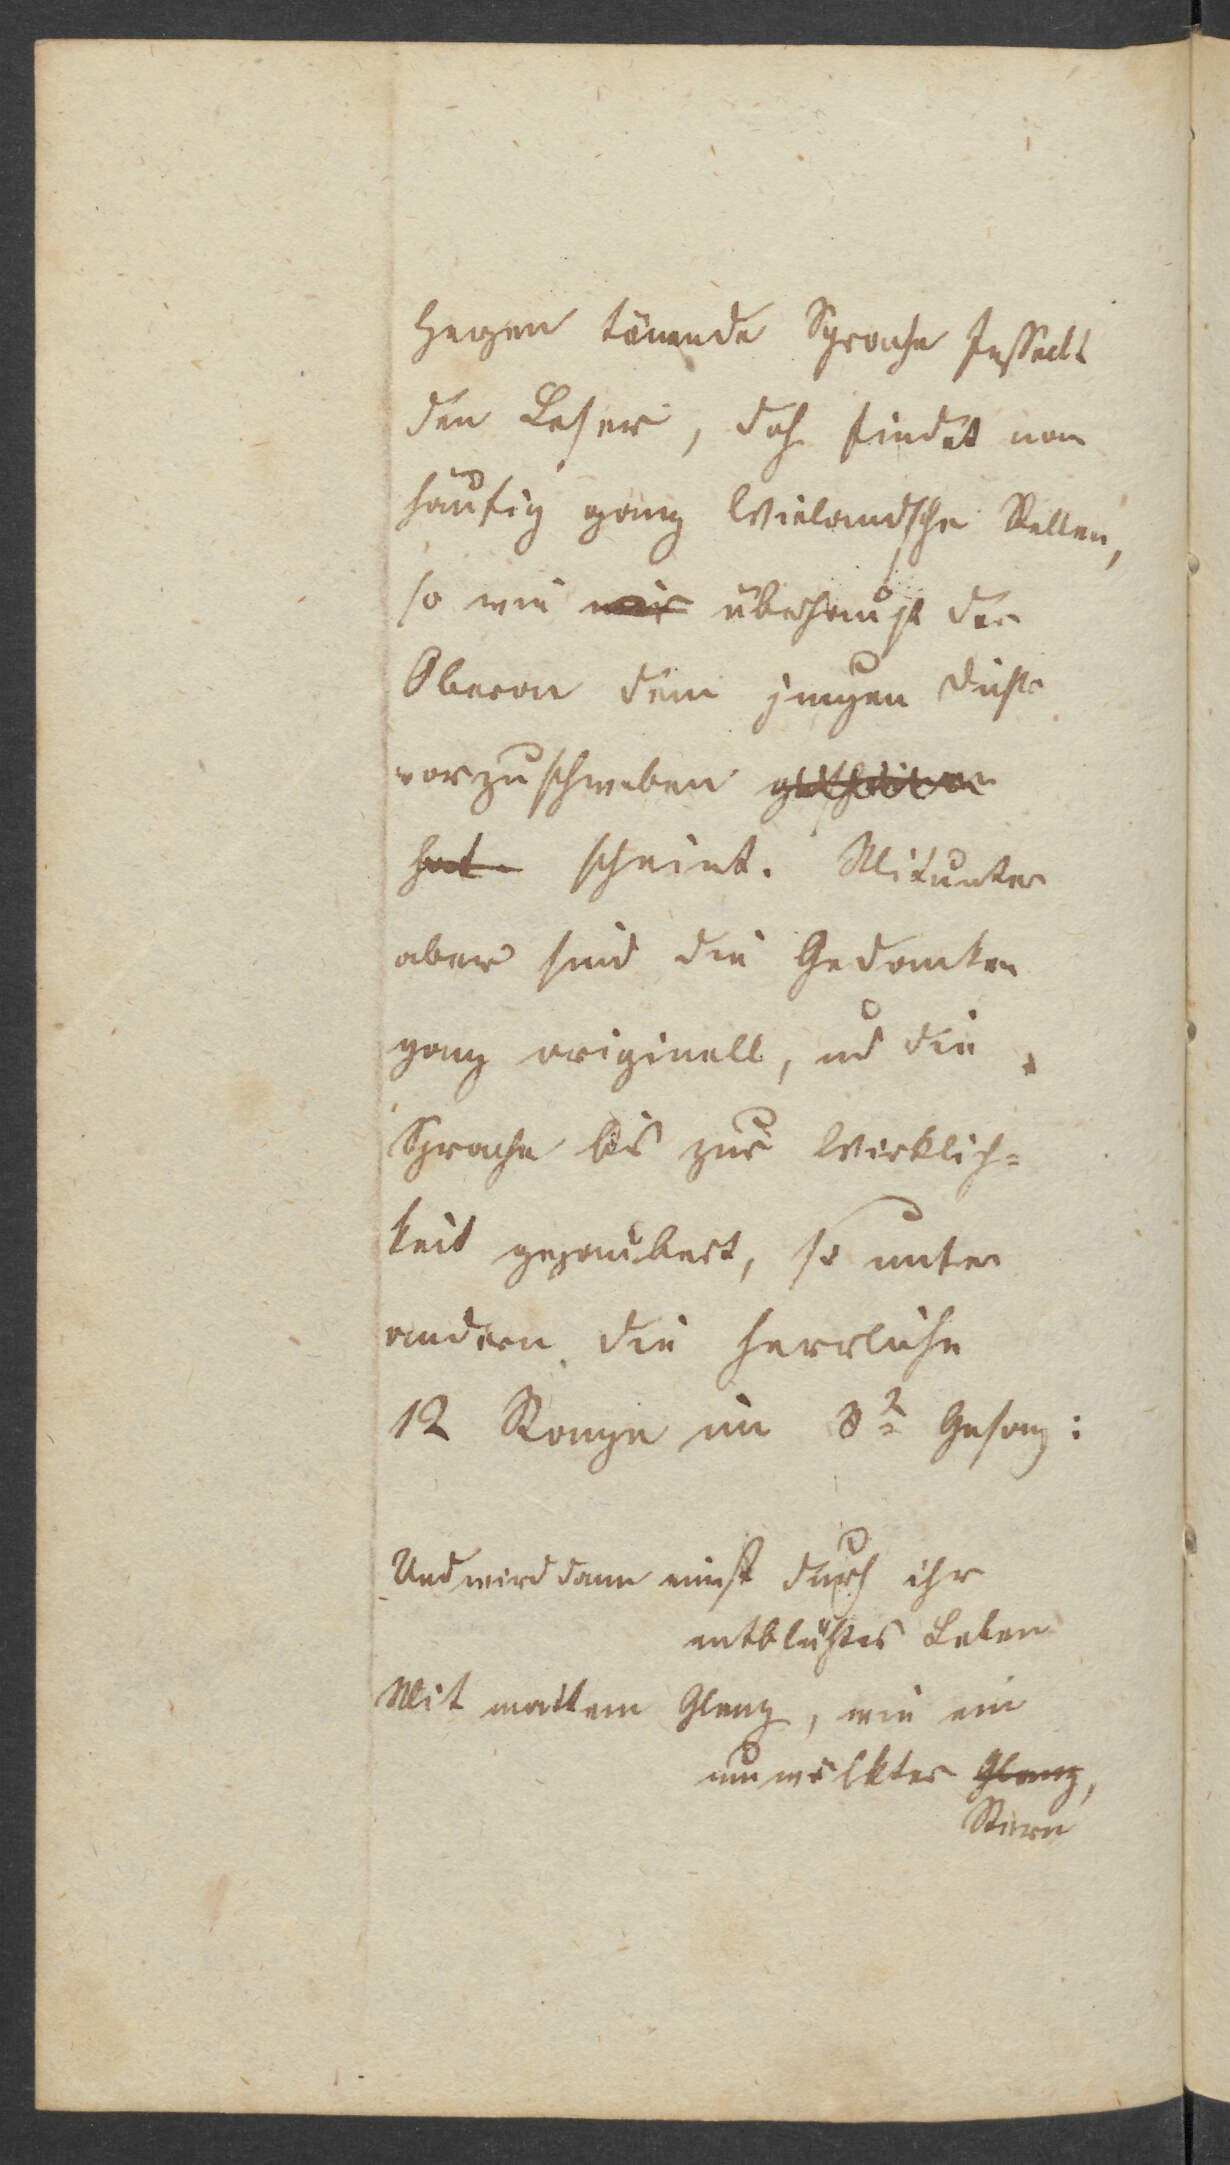 Herzen tönende Sprache fesselt
den Leser, doch findet man
häufig ganz Wielandsche Stellen,
so wie überhaupt der
Oberon dem jungen Dichter
vorzuschweben
hat scheint. Mitunter
aber sind die Gedanken
ganz originell, und die
Sprache bis zur Wirklich=
keit gezaubert, so unter
andern die herrliche
12 Stanze im 3 Gesang:
Und wird dann einst durch ihr
entblühtes Leben
Mit mattem Glanz, wie ein
umwölkter Glanz,
Stern